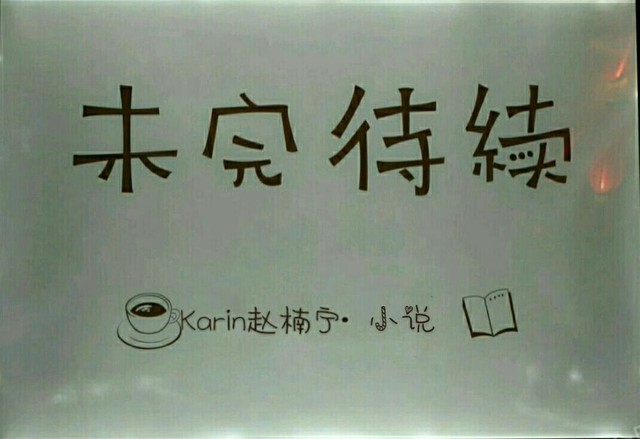 未完待续
Karin赵楠宁• 小说